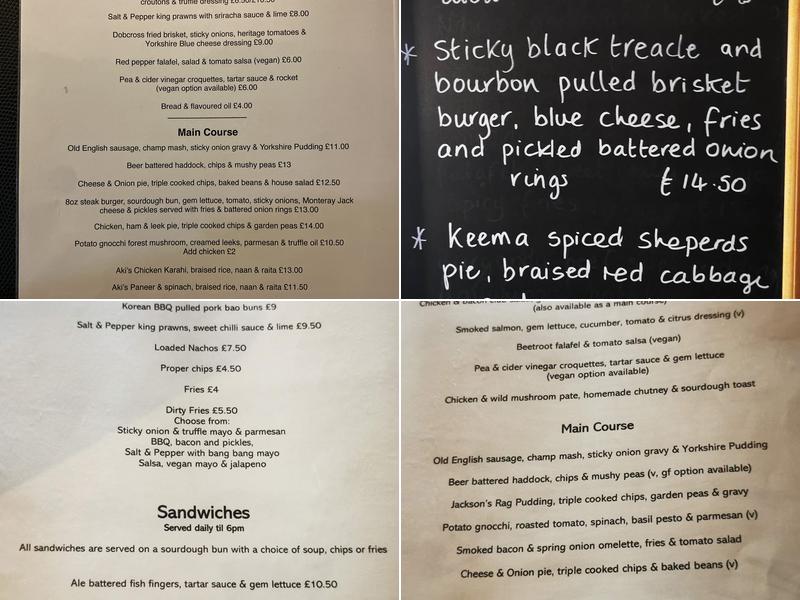 croutons & truffle dressing £6.50/£10.50
Salt & Pepper king prawns with sriracha sauce & lime £8.00
Dobcross fried brisket, sticky onions, heritage tomatoes &
Yorkshire Blue cheese dressing £9.00
Red pepper falafel, salad & tomato salsa (vegan) £6.00
Pea & cider vinegar croquettes, tartar sauce & rocket
(vegan option available) £6.00
Bread & flavoured oil £4.00
Main Course
Old English sausage, champ mash, sticky onion gravy & Yorkshire Pudding £11.00
Beer battered haddock, chips & mushy peas £13
Cheese & Onion pie, triple cooked chips, baked beans & house salad £12.50
8oz steak burger, sourdough bun, gem lettuce, tomato, sticky onions, Monteray Jack
cheese & pickles served with fries & battered onion rings £13.00
Chicken, ham & leek pie, triple cooked chips & garden peas £14.00
Potato gnocchi forest mushroom, creamed leeks, parmesan & truffle oil £10.50
Add chicken £2
Aki's Chicken Karahi, braised rice, naan & raita £13.00
Aki's Paneer & spinach, braised rice, naan & raita £11.50
* Sticky black treacle and
bourbon pulled brisket
burger, blue cheese, fries
and pickled battered onion
rings £14.50
* Keema spiced Sheperds
pie, braised red cabbage
Korean BBQ pulled pork bao buns £9
Salt & Pepper king prawns, sweet chilli sauce & lime £9.50
Loaded Nachos £7.50
Proper chips £4.50
Fries £4
Dirty Fries £5.50
Choose from:
Sticky onion & truffle mayo & parmesan
BBQ, bacon and pickles,
Salt & Pepper with bang bang mayo
Salsa, vegan mayo & jalapeno
Sandwiches
Served daily til 6pm
All sandwiches are served on a sourdough bun with a choice of soup, chips or fries
Ale battered fish fingers, tartar sauce & gem lettuce £10.50
Chicken & bacon
(also available as a main course)
Smoked salmon, gem lettuce, cucumber, tomato & citrus dressing (v)
Beetroot falafel & tomato salsa (vegan)
Pea & cider vinegar croquettes, tartar sauce & gem lettuce
(vegan option available)
Chicken & wild mushroom pate, homemade chutney & sourdough toast
Main Course
Old English sausage, champ mash, sticky onion gravy & Yorkshire Pudding
Beer battered haddock, chips & mushy peas (v, gf option available)
Jackson's Rag Pudding, triple cooked chips, garden peas & gravy
Potato gnocchi, roasted tomato, spinach, basil pesto & parmesan (v)
Smoked bacon & spring onion omelette, fries & tomato salad
Cheese & Onion pie, triple cooked chips & baked beans (v)